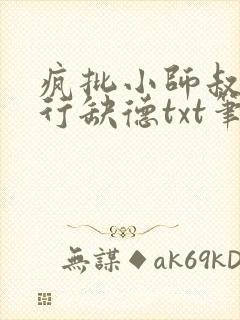 疯批小师叔
行缺德txt笔
無謀◆ak69kD